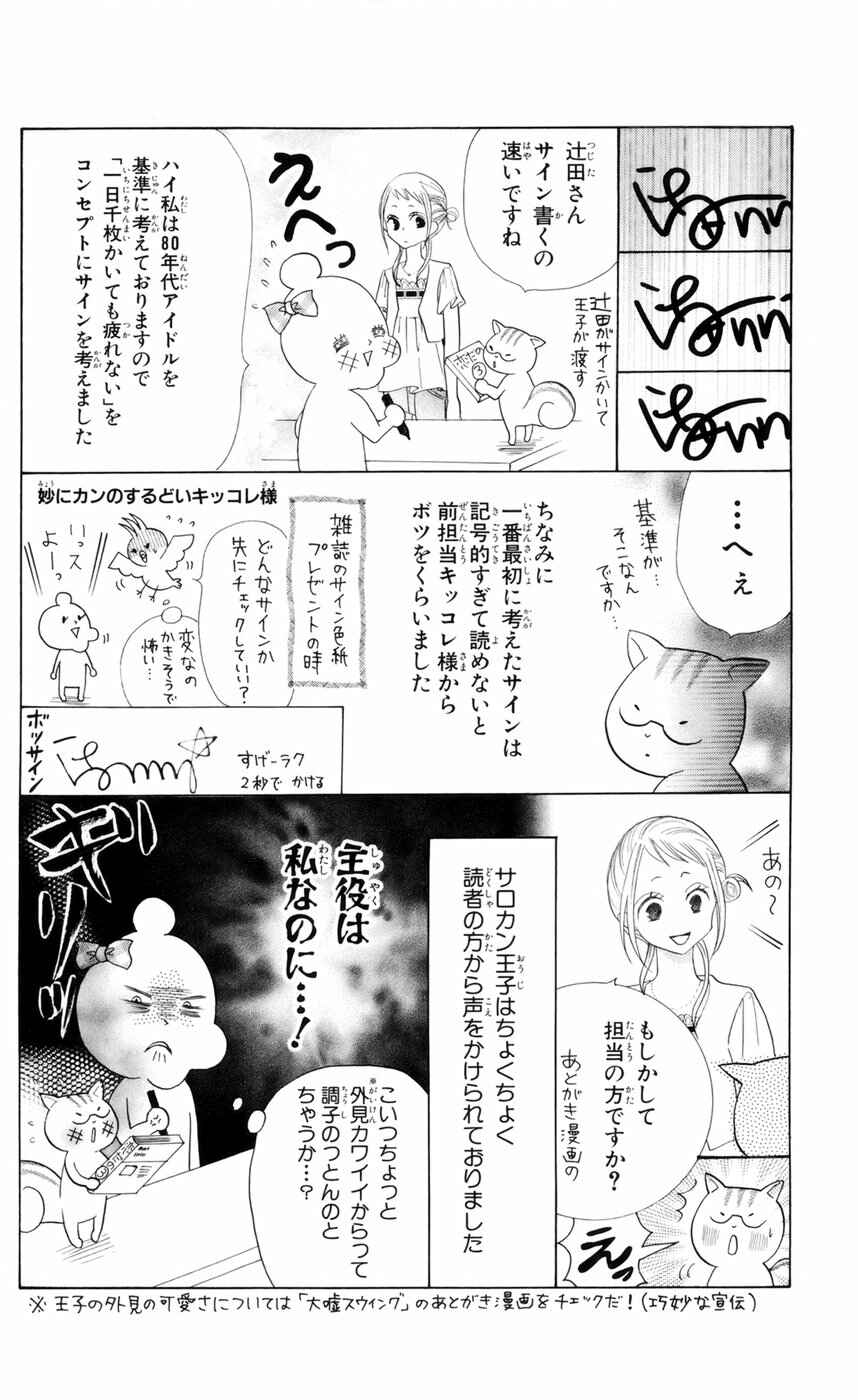 辻田さん
サイン書くの
速いですね
辻田がサインかいて
王子が渡す
恋だの
③
えへっ
ハイ私は80年代アイドルを
基準に考えておりますので
「一日千枚かいても疲れない」を
コンセプトにサインを考えました
…へぇ
基準が…
そこなん
ですか…
ちなみに
一番最初に考えたサインは
記号的すぎて読めないと
前担当キッコレ様から
ボツをくらいました
妙にカンのするどいキッコレ様
雑誌のサイン色紙
プレゼントの時
どんなサインか
先にチェックしていい?
変なの
かきそうで
怖い…
いっス
よーっ
ボッサイン
すげーラク
2秒でかける
あの〜
もしかして
担当の方ですか?
あとがき漫画の
えっ
サロカン王子はちょくちょく
読者の方から声をかけられておりました
主役は
私なのに…!
ギリッ
こいつちょっと
※外見カワイイからって
調子のっとんのと
ちゃうか…?
※王子の外見の可愛さについては「大嘘スウイング」のあとがき漫画をチェックだ!(巧妙な宣伝)